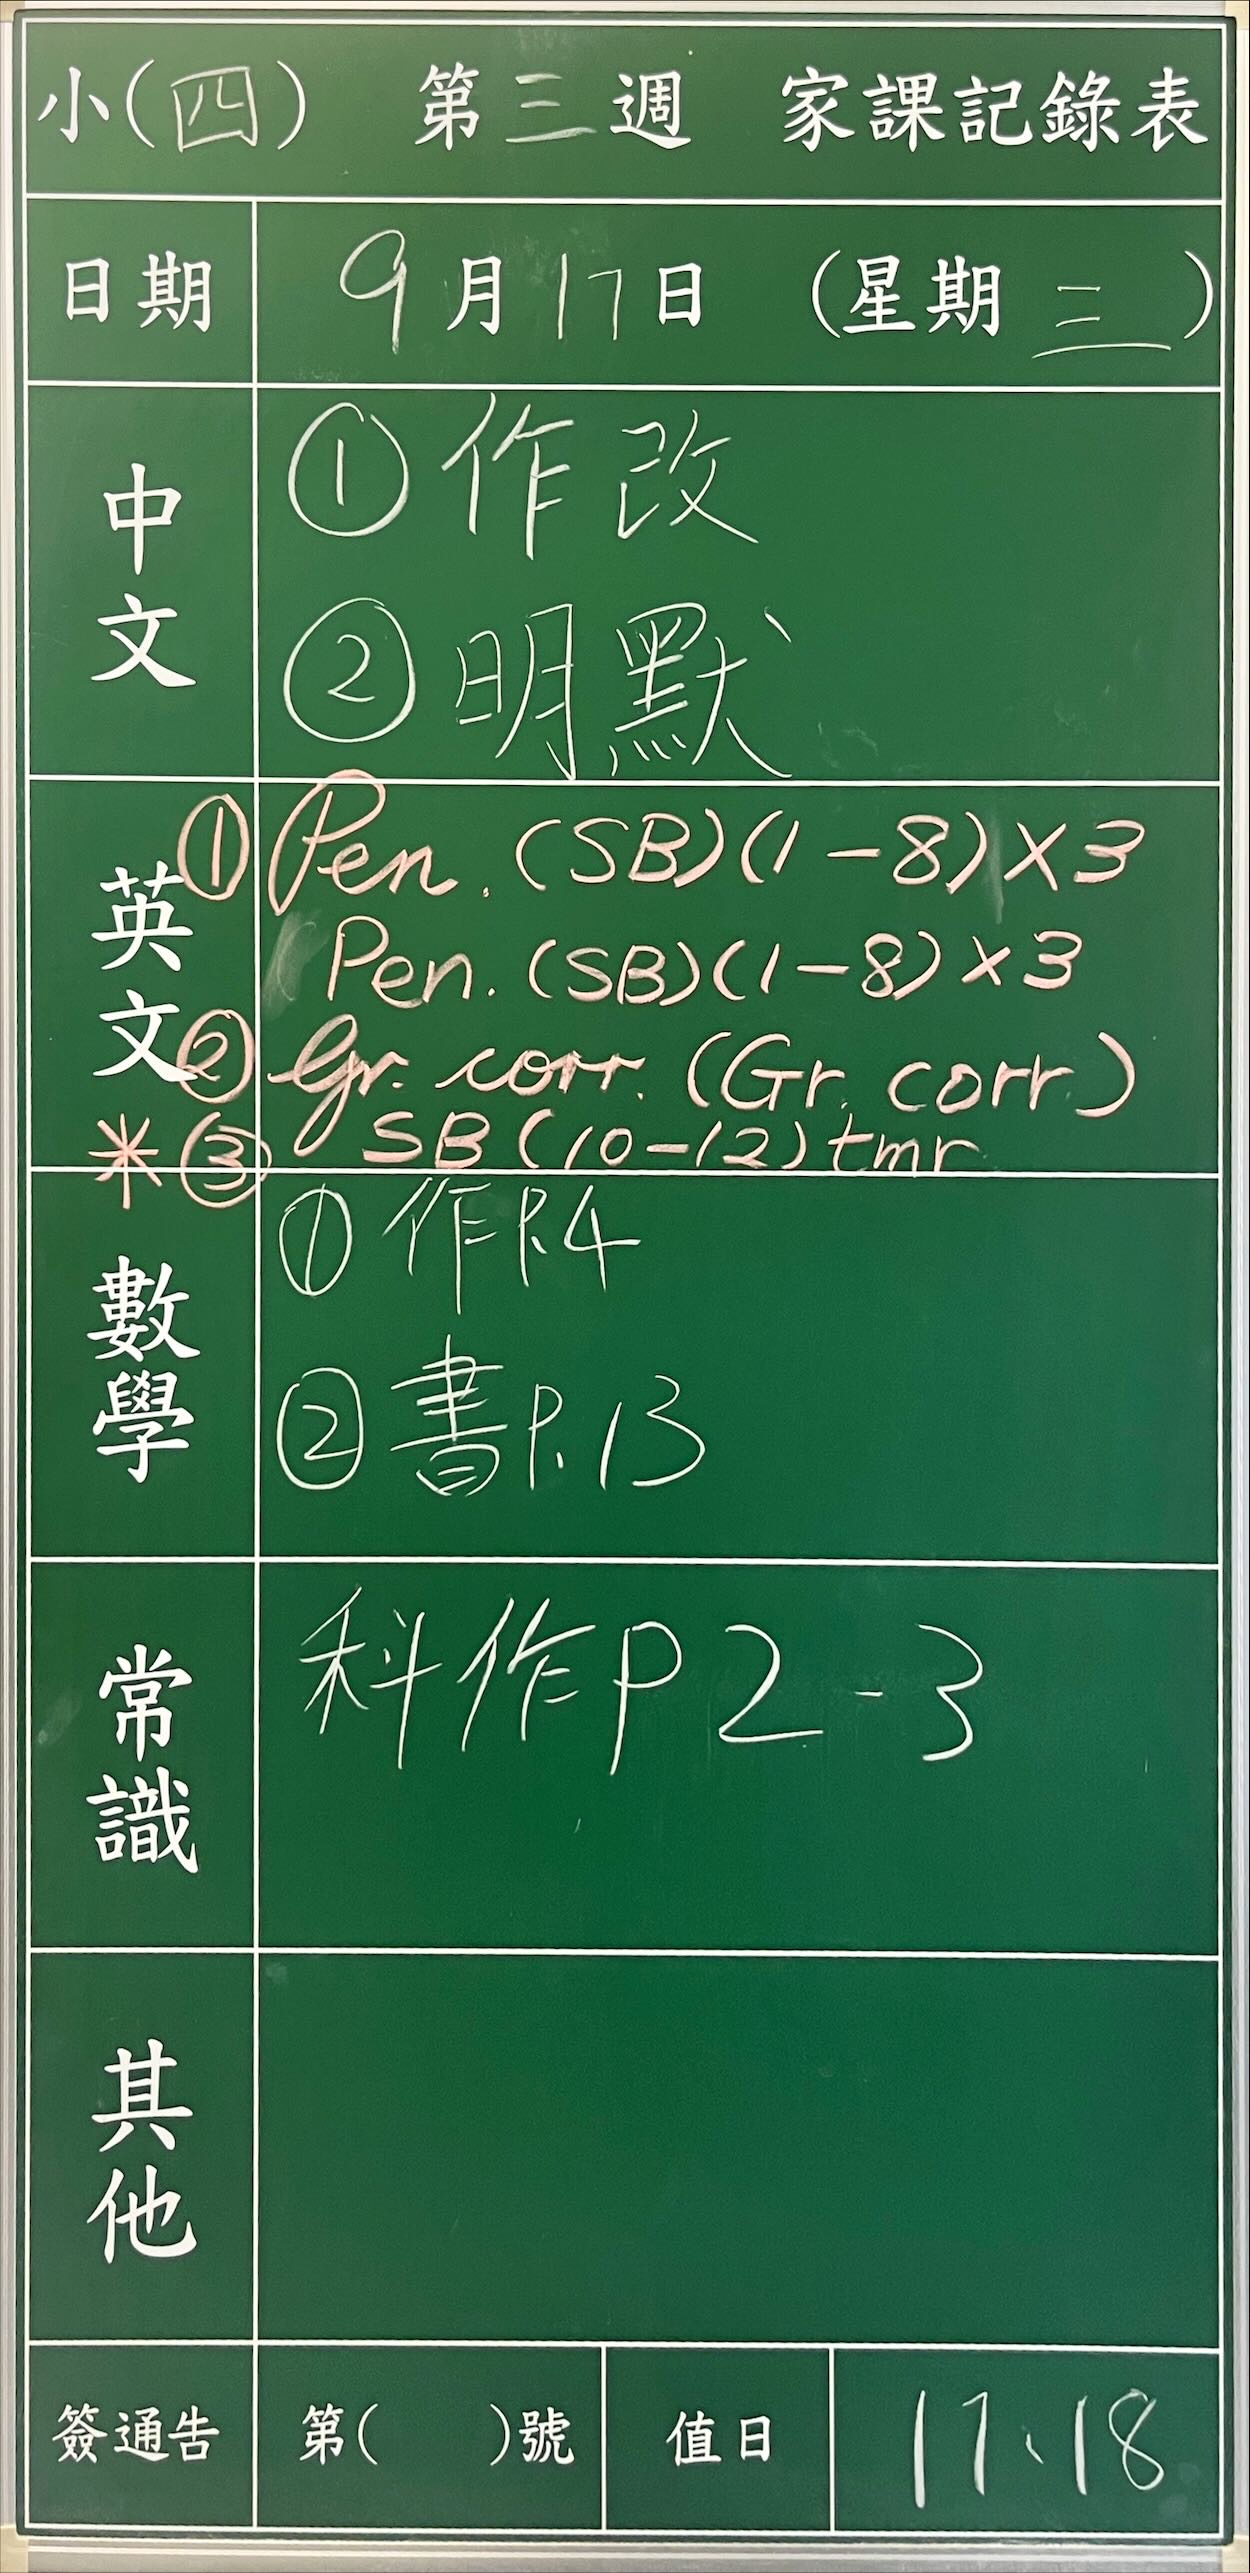 小(四) 第三週 家課記錄表
日期 9月17日 (星期三)
中文
①作改
②明默
英文
① Pen. (SB)(1-8)×3
Pen. (SB)(1-8)×3
② Gr. corr. (Gr. corr.)
*③ SB (10-12) tmr
數學
①作P.4
②書P.13
常識
科作P2-3
其他
簽通告 第( )號 值日 17、18